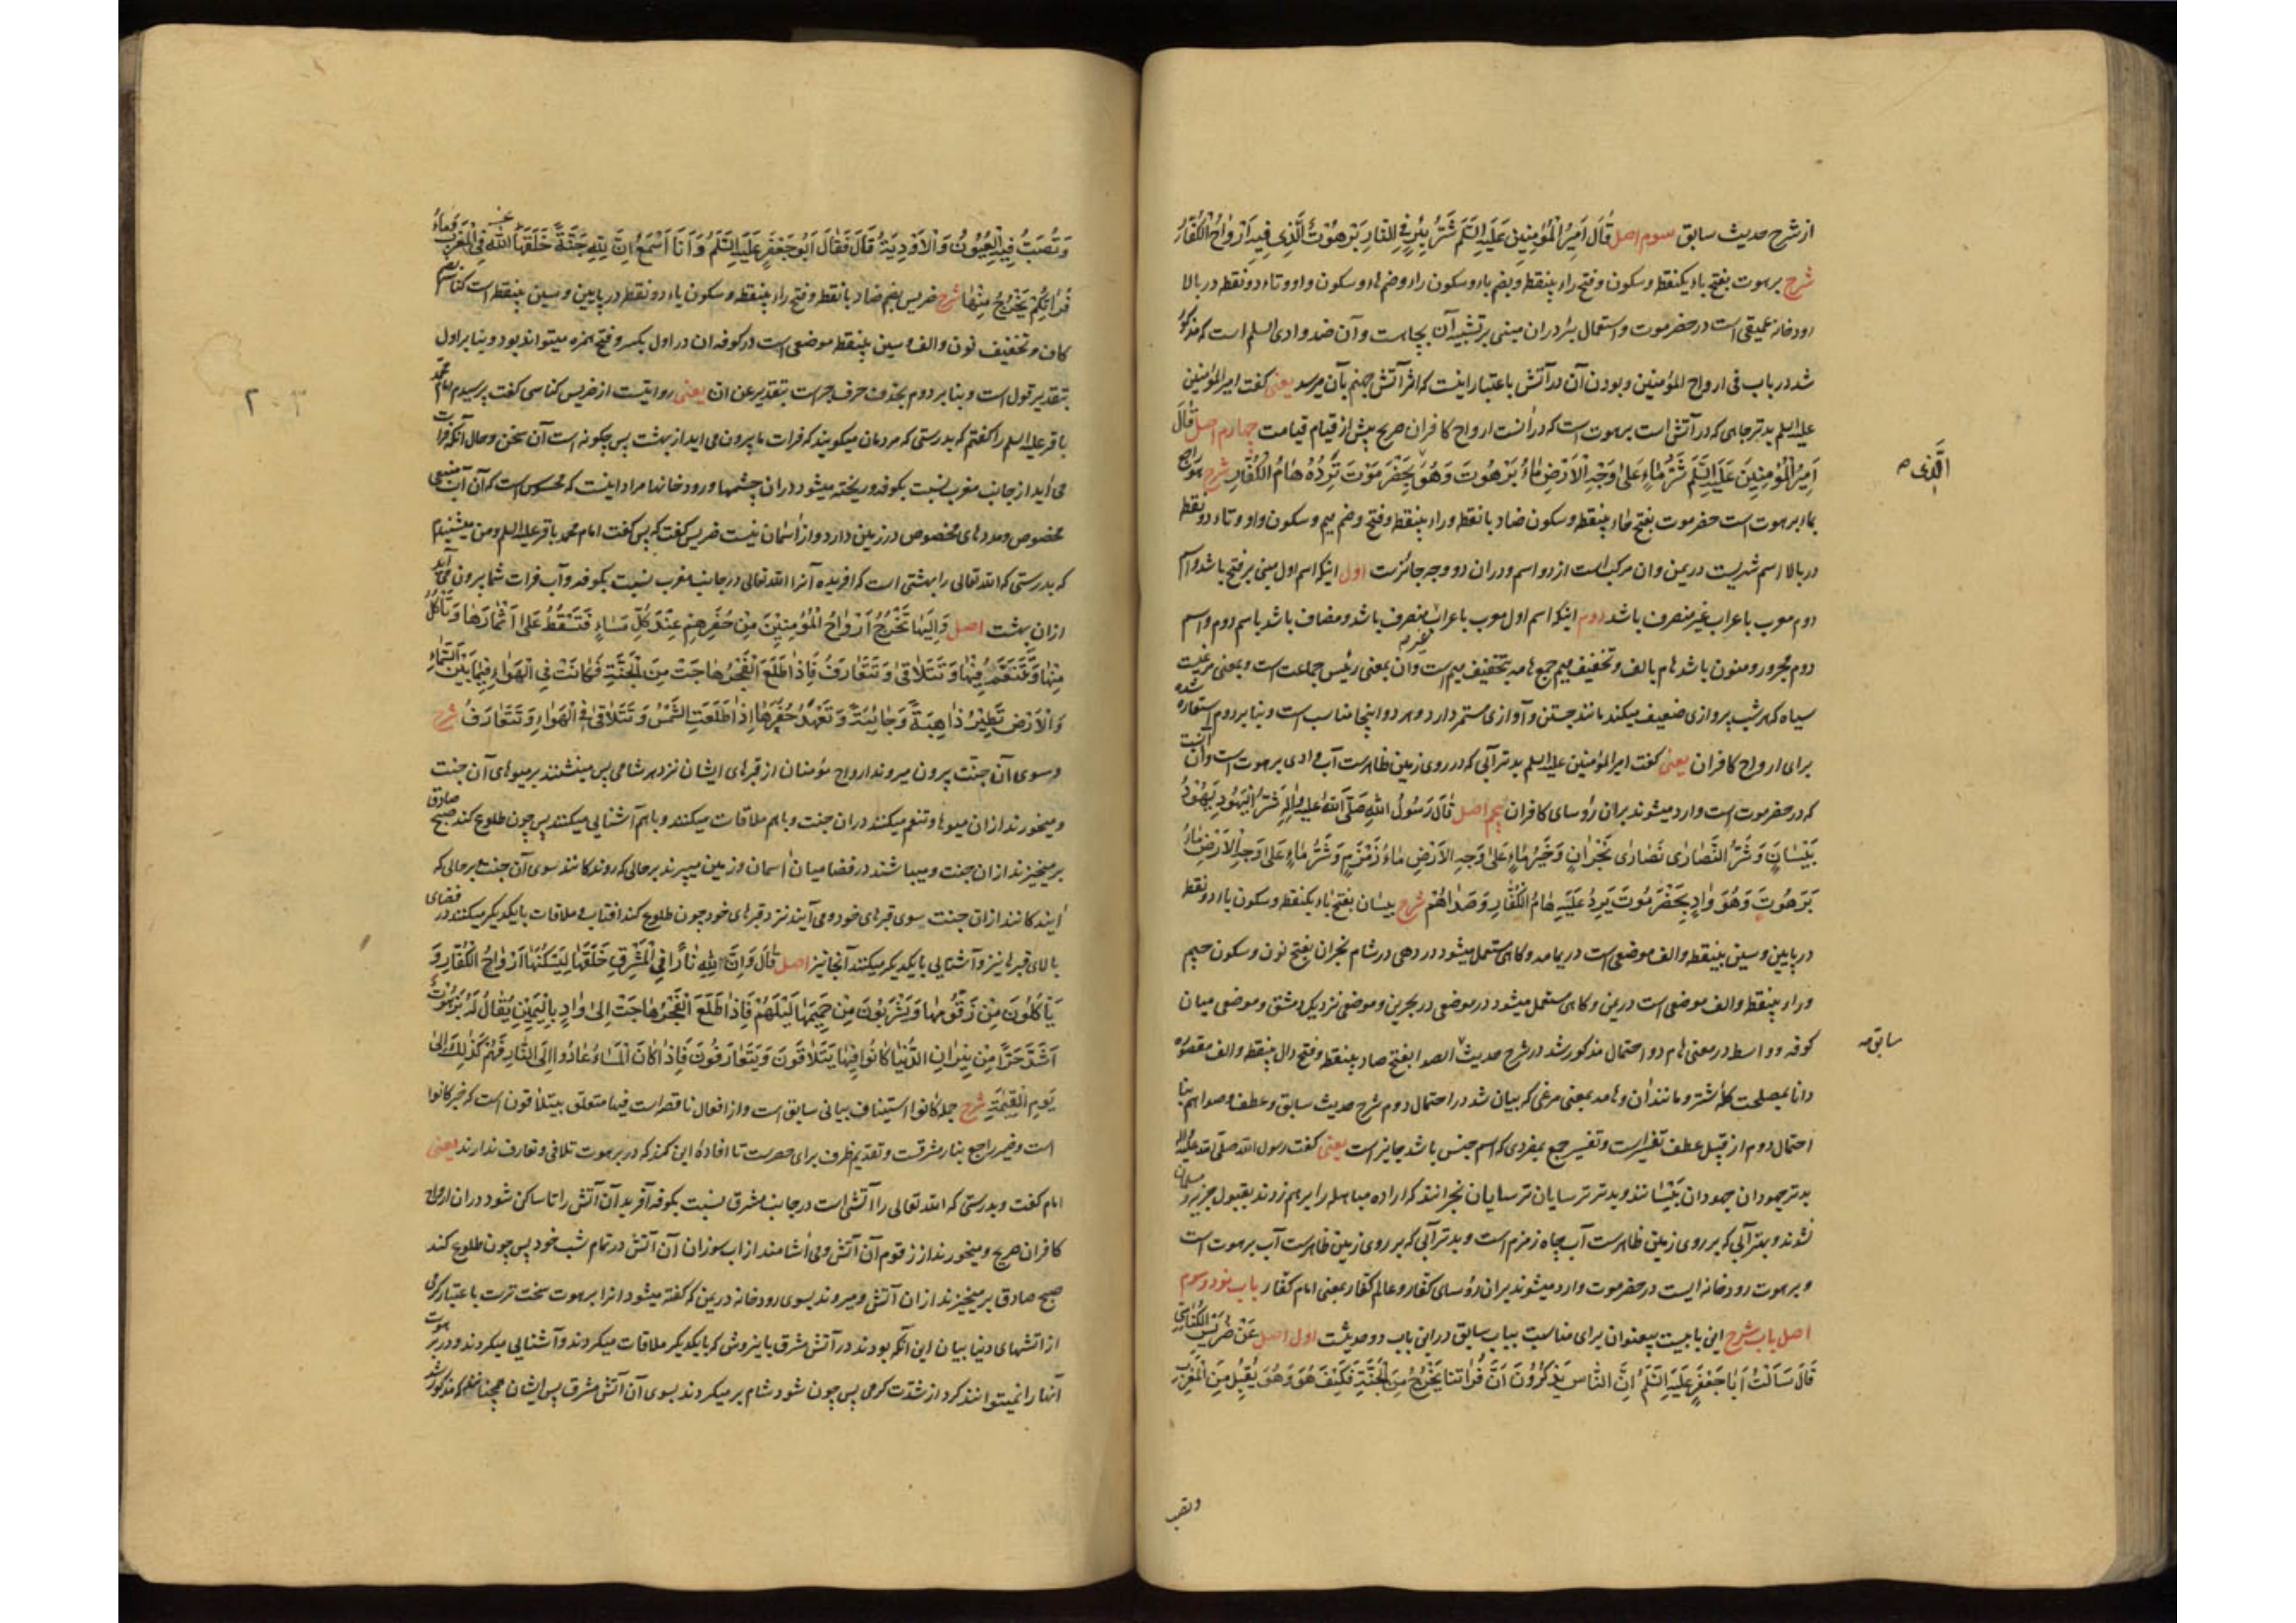 از شرح حدیث سابق سوم اصل قَالَ اَمِیرُ الْمُؤْمِنِینَ عَلَیْهِ السَّلَمُ شَرُّ بِئْرٍ فِی النَّارِ بَرَهُوتُ الَّذِی فِیهِ اَرْوَاحُ الْکُفَّارُ
شرح برهوت بفتح باء یکنقطه و سکون و فتح راء بینقطه و بضم باء و سکون راء و ضم هاء و سکون واو و تاء دو نقطه در بالا
رودخانه عمیقی است در حضرموت و استعمال بئر دران مبنی بر تشبیه آن بچاه است و آن ضد وادی السلم است که مذکور
شد در باب فی ارواح المؤمنین و بودن آن در آتش باعتبار اینست که اثر آتش جهنم بآن میرسد یعنی گفت امیر المؤمنین
علیه السلم بدتر چاهی که در آتش است برهوت است که در آنست ارواح کافران صریح پیش از قیام قیامت چهارم اصل قَالَ
اَمِیرُ الْمُؤْمِنِینَ عَلَیْهِ السَّلَمُ شَرُّ مَاءٍ عَلَی وَجْهِ الْاَرْضِ مَاءُ بَرَهُوتَ وَهُوَ بِحَضْرَمَوْتَ تَرِدُهُ هَامُ الْکُفَّارِ شرح هو راجع
الَّذِی صح
بماء برهوت است حضرموت بفتح حاء بینقطه و سکون ضاد بانقطه و راء بینقطه و فتح و ضم میم و سکون واو و تاء دو نقطه
در بالا اسم شهریست در یمن و ان مرکب است از دو اسم و دران دو وجه جائزست اول اینکه اسم اول مبنی بر فتح باشد و اسم
دوم معرب باعراب غیر منصرف باشد دوم اینکه اسم اول معرب باعراب منصرف باشد و مضاف باشد باسم دوم و اسم
دوم مجرور و منون باشد هام بالف و تخفیف میم جمع هامه بتخفیف میم است و ان بمعنی رئیس جماعت است و بمعنی مرغیست
سیاه که هر شب پروازی ضعیف میکند مانند جستن و آوازی مستمر دارد و هر دو اینجا مناسب است و بنا بر دوم استعاره شده
برای ارواح کافران یعنی گفت امیر المؤمنین علیه السلم بدتر آبی که در روی زمین ظاهرست آب وادی برهوت است و آن آنست
که در حضرموت است وارد میشوند بران رؤسای کافران پنجم اصل قَالَ رَسُولُ اللّهِ صَلَّی اللّهُ عَلَیْهِ وَاٰلِهِ شَرُّ الْیَهُودِ یَهُودُ
بَیْسَانَ وَ شَرُّ النَّصَارَی نَصَارَی نَجْرَانَ وَخَیْرُ مَاءٍ عَلَی وَجْهِ الْاَرْضِ مَاءُ زَمْزَمَ وَشَرُّ مَاءٍ عَلَی وَجْهِ الْاَرْضِ مَاءُ
بَرَهُوتَ وَهُوَ وَادٍ بِحَضْرَمَوْتَ یَرِدُ عَلَیْهِ هَامُ الْکُفَّارِ وَصَدَاهُمْ شرح بیسان بفتح باء یکنقطه و سکون یاء دو نقطه
در پایین و سین بینقطه و الف موضعی است در یمامه و کاهی مستعمل میشود در دهی در شام نجران بفتح نون و سکون جیم
و راء بینقطه و الف موضعی است در یمن و کاهی مستعمل میشود در موضعی در بحرین و موضعی نزدیک دمشق و موضعی میان
کوفه و واسط در معنی هام دو احتمال مذکور شد در شرح حدیث الصدا بفتح صاد بینقطه و فتح دال بینقطه و الف مقصوره
سابق صح
دانا بمصلحت کله شتر و مانند ان و هامه بمعنی مرغی که بیان شد در احتمال دوم شرح حدیث سابق و عطف صداهم بنا
احتمال دوم از قبیل عطف تفسیرست و تفسیر جمع بمفردی که اسم جنس باشد جایز است یعنی گفت رسول الله صلّی الله علیه و آله
بدتر جهودان جهودان بَیْسَانند و بدتر ترسایان ترسایان نجرانند که اراده مباهله را برهم زدند بقبول جزیه و مسلمان
نشدند و بهتر آبی که بر روی زمین ظاهرست آب چاه زمزم است و بدتر آبی که بر روی زمین ظاهرست آب برهوت است
و برهوت رودخانه ایست در حضرموت وارد میشوند بران رؤسای کفار و عالم کفار بمعنی امام کفار باب نود و سوم
اصل باب شرح این بابیست بیعنوان برای مناسبت بباب سابق در این باب دو حدیثست اول اصل عَنْ ضُرَیْسِ الْکُنَاسِیِّ
قَالَ سَاَلْتُ اَبَا جَعْفَرٍ عَلَیْهِ السَّلَمُ اِنَّ النَّاسَ یَذْکُرُونَ اَنَّ فُرَاتَنَا یَخْرُجُ مِنَ الْجَنَّةِ فَکَیْفَ هُوَ وَهُوَ یُقْبِلُ مِنَ الْمَغْرِبِ
وتصب
وَتُصَبُّ فِیهِ الْعُیُونُ وَالْاَوْدِیَةُ قَالَ فَقَالَ اَبُو جَعْفَرٍ عَلَیْهِ السَّلَمُ وَاَنَا اَسْمَعُ اِنَّ لِلّهِ جَنَّةً خَلَقَهَا اللّهُ فِی الْمَغْرِبِ وَمَاءُ
فُرَاتِکُمْ یَخْرُجُ مِنْهَا شرح ضریس بضم ضاد بانقطه و فتح راء بینقطه و سکون یاء دو نقطه در پایین و سین بینقطه است کناسه بضم
کاف و تخفیف نون و الف و سین بینقطه موضعی است در کوفه ان در اول بکسر و فتح همزه میتواند بود و بنا بر اول
بتقدیر قول است و بنا بر دوم بحذف حرف جر است بتقدیر عن ان یعنی روایتست از ضریس کناسی گفت پرسیدم امام محمد
۲۰۳
باقر علیه السلم را گفتم که بدرستی که مردمان میکویند که فرات ما بیرون می اید از بهشت پس چکونه است آن سخن و حال آنکه فرات
می اید از جانب مغرب نسبت بکوفه و ریخته میشود دران چشمها و رودخانها مراد اینست که محسوس است که آن آب منبعی
مخصوص و مددهای مخصوص در زمین دارد و از آسمان نیست ضریس گفت که پس گفت امام محمد باقر علیه السلم و من میشنیدم
که بدرستی که الله تعالی را بهشتی است که افریده آنرا الله تعالی در جانب مغرب نسبت بکوفه و آب فرات شما بیرون می آید
ازان بهشت اصل وَاِلَیْهَا تَخْرُجُ اَرْوَاحُ الْمُؤْمِنِینَ مِنْ حُفَرِهِمْ عِنْدَ کُلِّ مَسَاءٍ فَتَسْقُطُ عَلَی اَثْمَارِهَا وَتَاْکُلُ
مِنْهَا وَتَتَنَعَّمُ فِیْهَا وَتَتَلَاقَی وَتَتَعَارَفُ فَاِذَا طَلَعَ الْفَجْرُ هَاجَتْ مِنَ الْجَنَّةِ فَکَانَتْ فِی الْهَوَاءِ فِیمَا بَیْنَ السَّمَاءِ
وَالْاَرْضِ تَطِیْرُ ذَاهِبَةً وَجَائِیَةً وَتَعْهَدُ حُفَرَهَا اِذَا طَلَعَتِ الشَّمْسُ وَتَتَلَاقَی فِی الْهَوَاءِ وَتَتَعَارَفُ شرح
و سوی آن جنّت بیرون میروند ارواح مؤمنان از قبرهای ایشان نزد هر شامی پس مینشنند بر میوهای آن جنت
و میخورند ازان میوها و تنعم میکنند دران جنت و باهم ملاقات میکنند و باهم آشنایی میکنند پس چون طلوع کند صبح صادق
برمیخیزند ازان جنت و میباشند در فضا میان آسمان و زمین میپرند بر حالی که روندکانند سوی آن جنت بر حالی که
آیندکانند ازان جنت سوی قبرهای خود و می آیند نزد قبرهای خود چون طلوع کند افتاب و ملاقات با یکدیکر میکنند در فضای
بالای قبرها نیز و آشنایی با یکدیکر میکنند آنجا نیز اصل قَالَ وَاِنَّ لِلّهِ نَارًا فِی الْمَشْرِقِ خَلَقَهَا لِیَسْکُنَهَا اَرْوَاحُ الْکُفَّارِ وَ
یَاْکُلُونَ مِنْ زَقُّومِهَا وَیَشْرَبُونَ مِنْ حَمِیمِهَا لَیْلَهُمْ فَاِذَا طَلَعَ الْفَجْرُ هَاجَتْ اِلَی وَادٍ بِالْیَمَنِ یُقَالُ لَهُ بَرَهُوتُ
اَشَدَّ حَرًّا مِنْ نِیْرَانِ الدُّنْیَا کَانُوا فِیْهَا یَتَلَاقَوْنَ وَیَتَعَارَفُونَ فَاِذَا کَانَ الْمَسَاءُ عَادُوا اِلَی النَّارِ فَهُمْ کَذٰلِکَ اِلَی
یَوْمِ الْقِیٰمَةِ شرح جمله کانوا استیناف بیانی سابق است و از افعال ناقصه است فیها متعلق بیتلاقون است که خبر کانوا
است و ضمیر راجع بنار مشرقست و تقدیم ظرف برای حصرست تا افادهٔ این کند که در برهوت تلاقی و تعارف ندارند یعنی
امام گفت و بدرستی که الله تعالی را آتشی است در جانب مشرق نسبت بکوفه آفرید آن آتش را تا ساکن شود دران ارواح
کافران صریح و میخورند از زقوم آن آتش و می آشامند از اب سوزان آن آتش در تمام شب خود پس چون طلوع کند
صبح صادق برمیخیزند ازان آتش و میروند بسوی رودخانه در یمن که گفته میشود انرا برهوت سخت ترست باعتبار کرمی
از اتشهای دنیا بیان این آنکه بودند در آتش مشرق باینروش که با یکدیکر ملاقات میکردند و آشنایی میکردند و در برهوت
آنها را نمیتوانند کرد از شدّت کرمی پس چون شود شام برمیکردند بسوی آن آتش مشرق پس ایشان همچنانند که مذکور شد